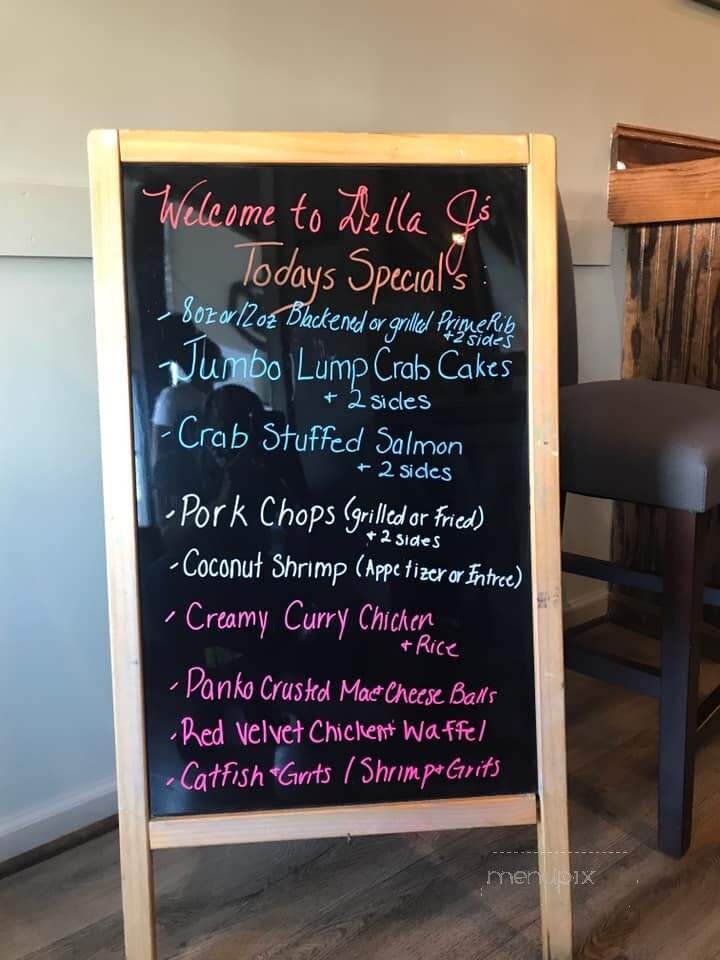 Welcome to Della J's
Todays Special's
- 8oz or 12oz Blackened or grilled Prime Rib
+ 2 sides
- Jumbo Lump Crab Cakes
+ 2 sides
- Crab Stuffed Salmon
+ 2 sides
- Pork Chops (grilled or Fried)
+ 2 sides
- Coconut Shrimp (Appetizer or Entree)
- Creamy Curry Chicken
+ Rice
- Panko Crusted Mac + Cheese Balls
- Red Velvet Chicken + Waffel
- Catfish + Grits / Shrimp + Grits
menupix